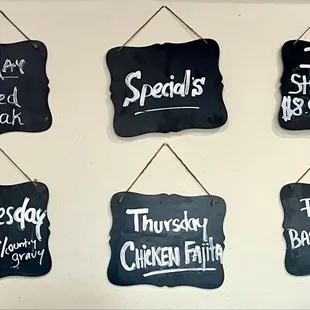 AY
ed
ak
Special's
$8.
esday
Country
gravy
Thursday
CHICKEN FAJITA
BAS